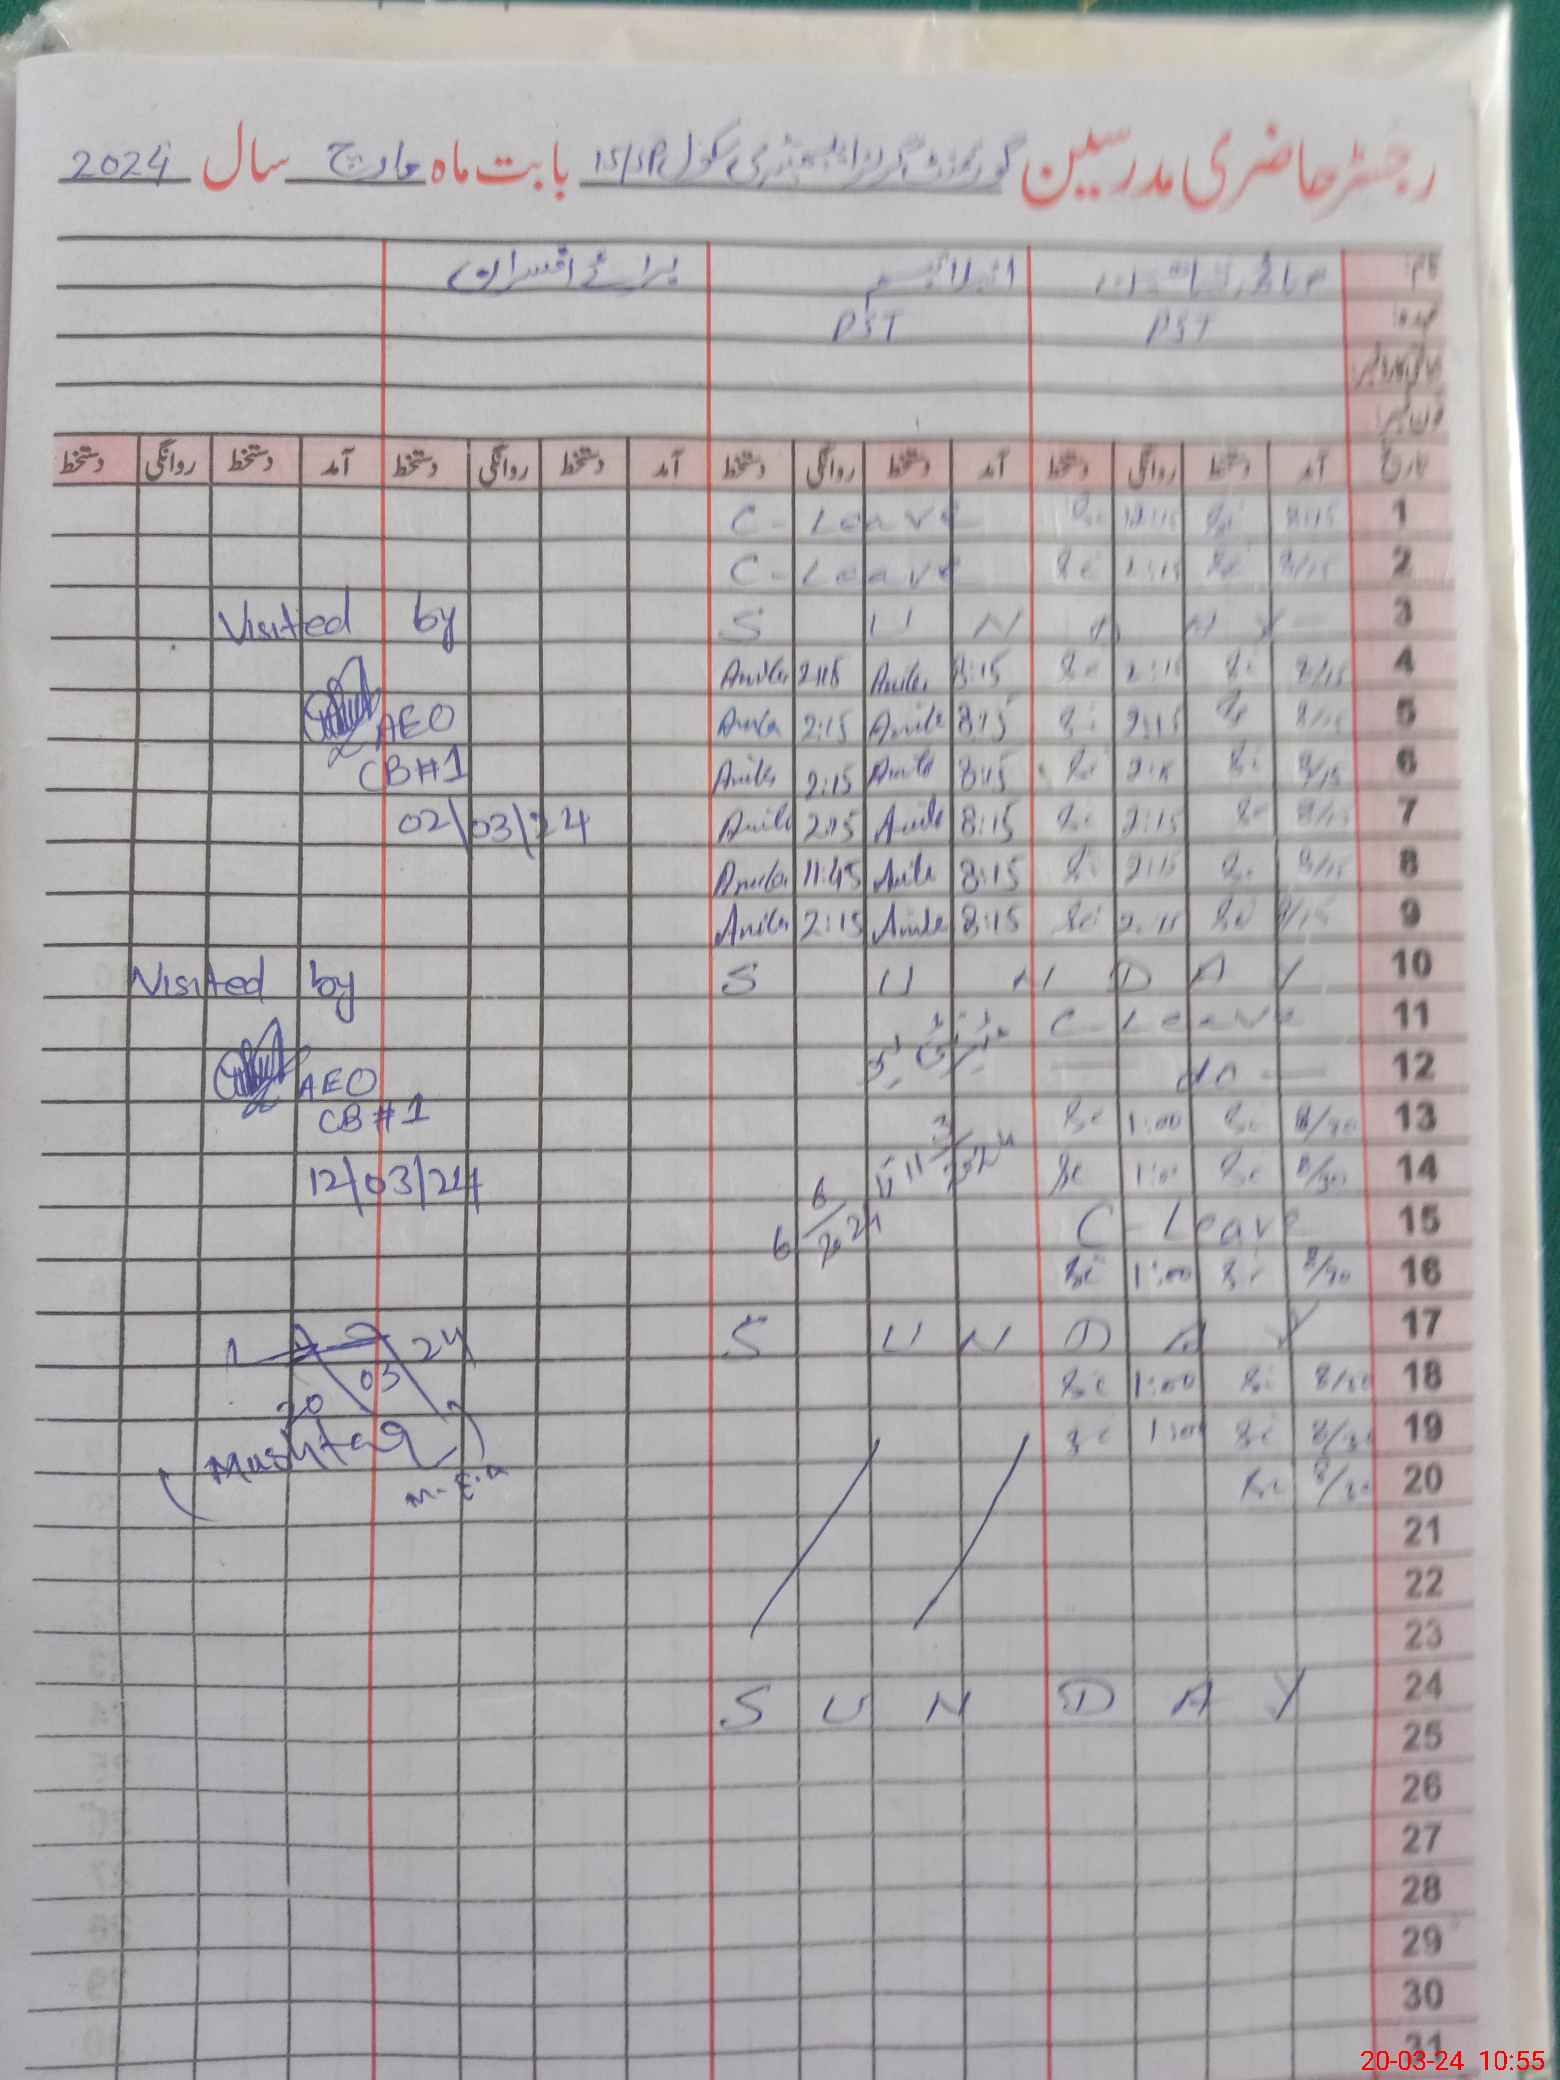 رجسٹر حاضری مدرسین گورنمنٹ گرلز ایلیمنٹری سکول 15/SP بابت ماہ مارچ سال 2024
نام برائے افسران
عہدہ PST PST
فون نمبر
تاریخ آمد دستخط روانگی دستخط آمد دستخط روانگی دستخط آمد دستخط روانگی دستخط آمد دستخط روانگی دستخط
C - Leave 8:15 1
C - Leave 2:15 8/15 2
Visited by S U N D A Y 3
Anila 2:15 Anila 8:15 2:15 8/15 4
AEO Anila 2:15 Anila 8:15 2:15 8/15 5
CB#1 Anila 2:15 Anila 8:15 2:15 8/15 6
02/03/24 Anila 2:15 Anila 8:15 2:15 8/15 7
Anila 11:45 Anila 8:15 2:15 8/15 8
Anila 2:15 Anila 8:15 2:15 8/15 9
Visited by S U N D A Y 10
C - Leave 11
AEO do 12
CB#1 1:00 8/30 13
12/03/24 11 3/2024 1:00 8/30 14
6 6/2024 C - Leave 15
1:00 8/30 16
S U N D A Y 17
20 03 24 1:00 8/30 18
Mushtaq 1:00 8/30 19
M.E.A 8/30 20
21
22
23
S U N D A Y 24
25
26
27
28
29
30
31
20-03-24 10:55